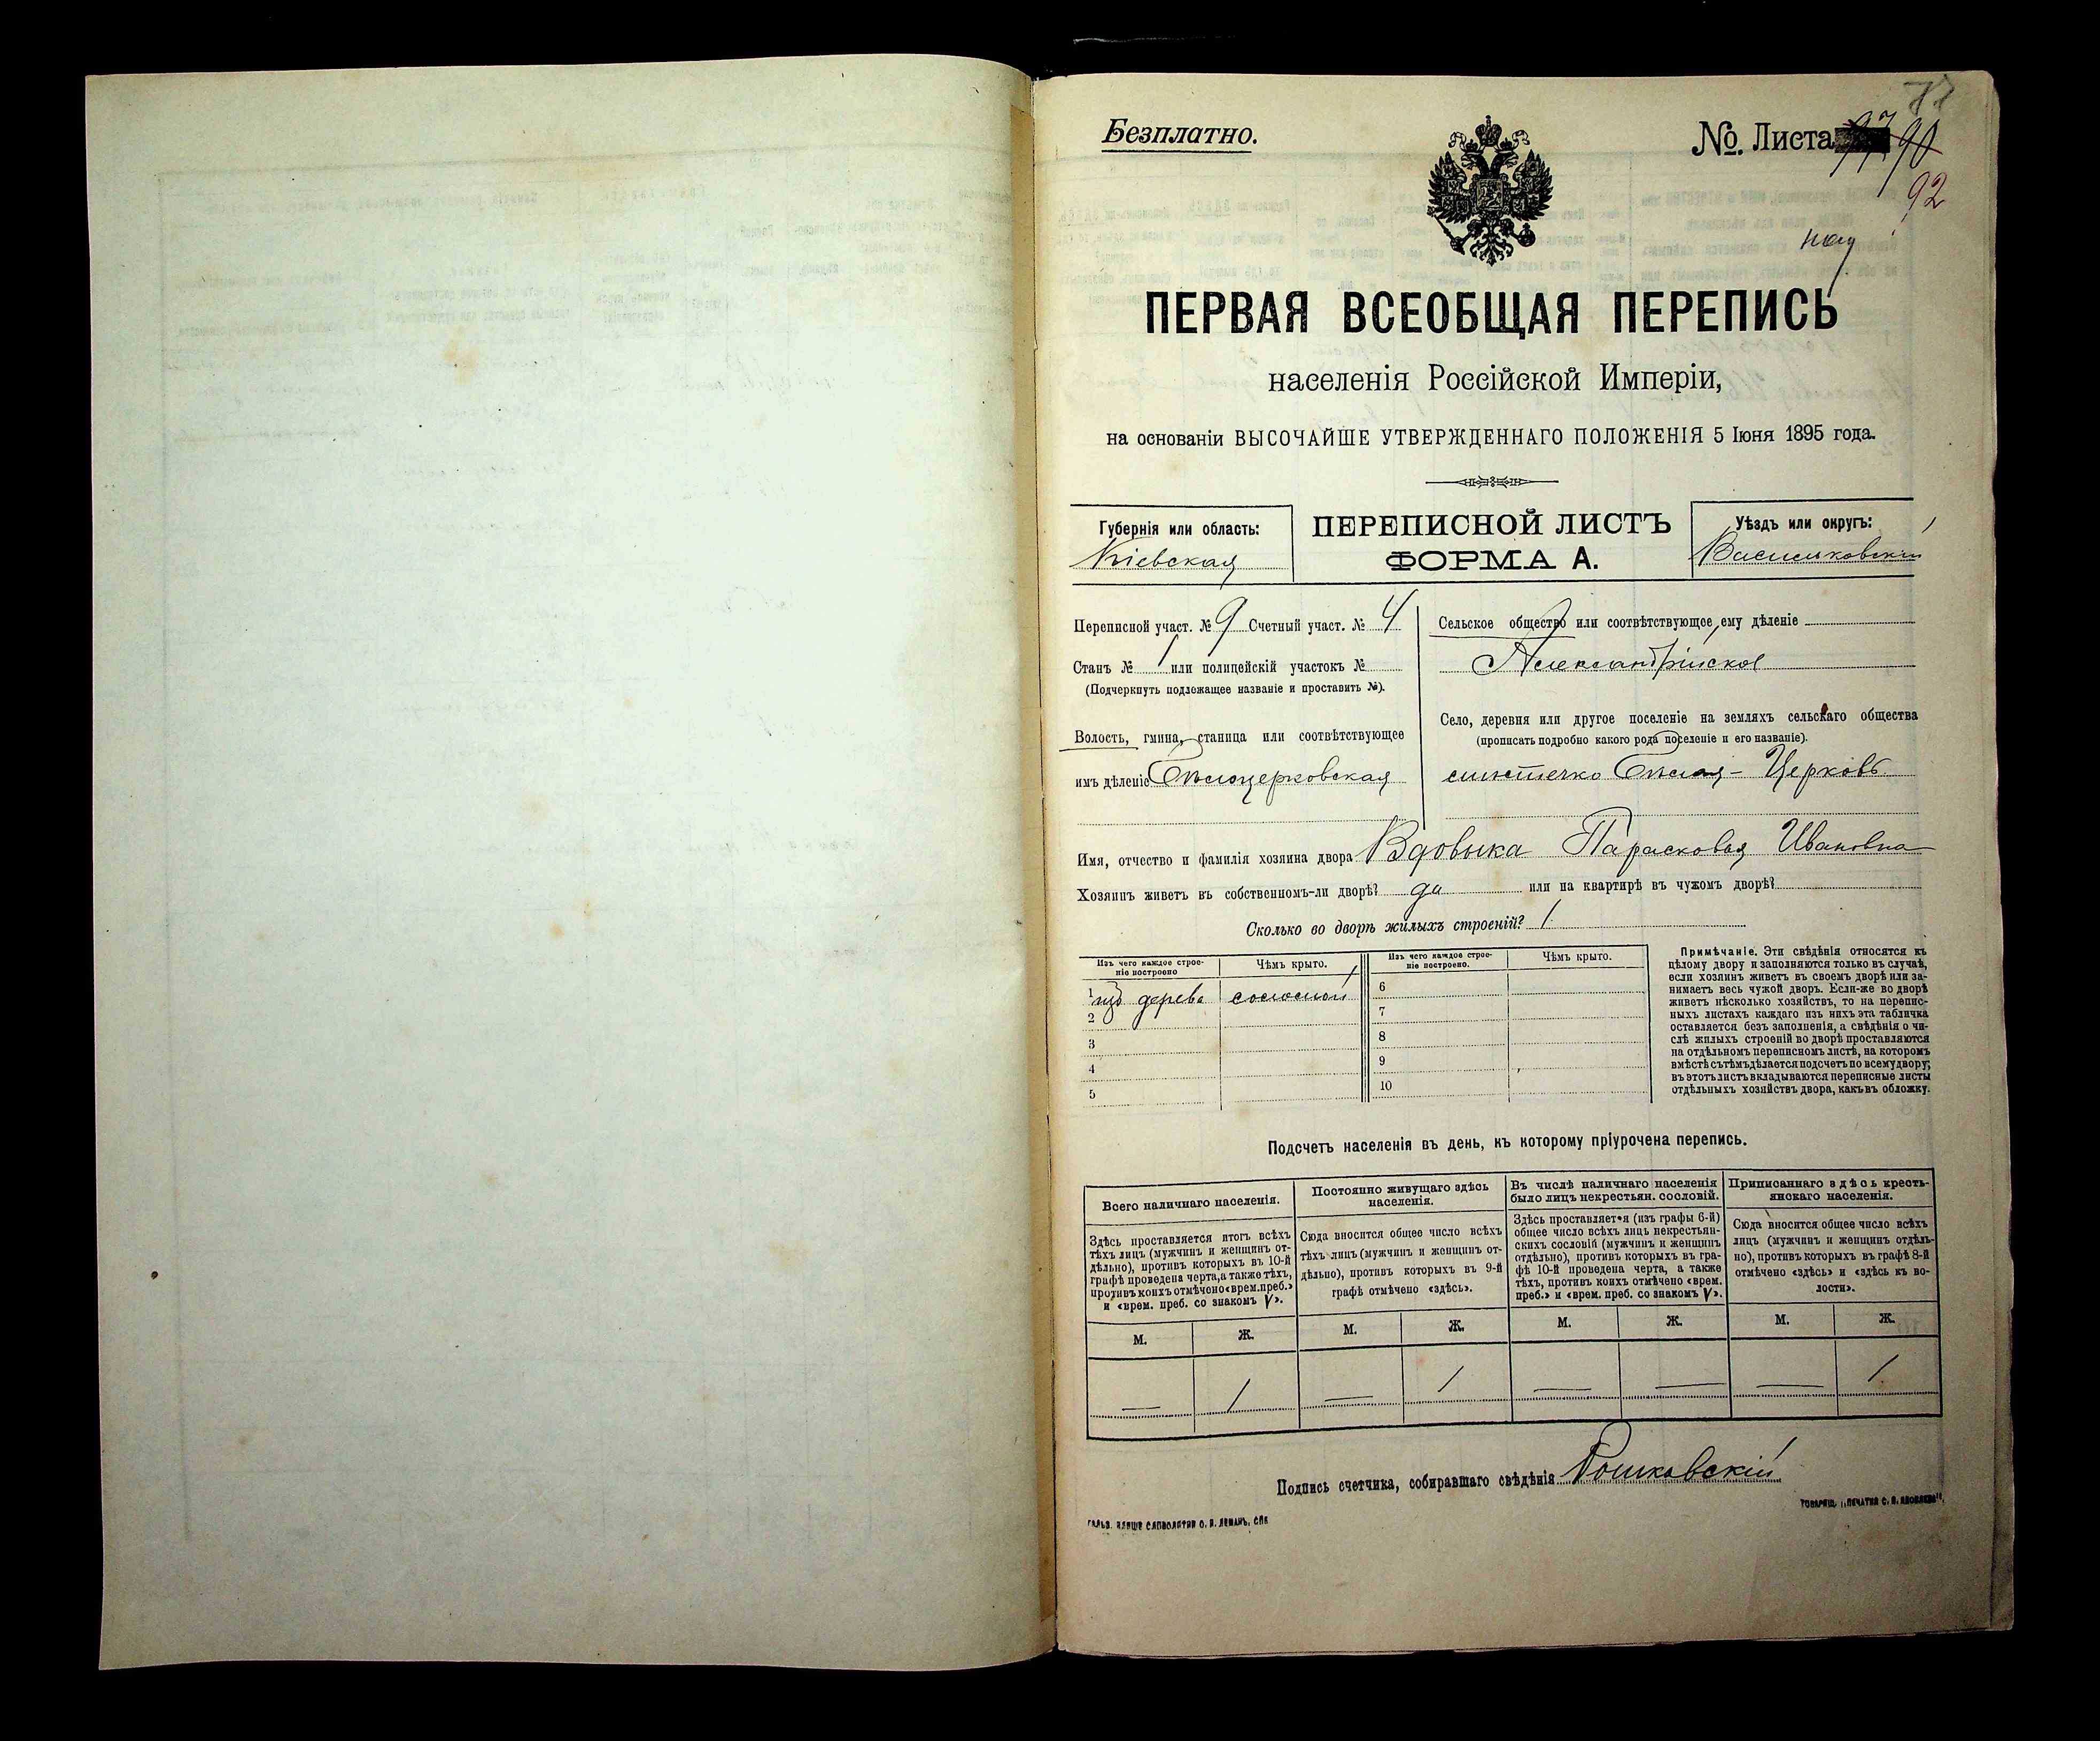 Безплатно.
№. Листа 90
92
ПЕРВАЯ ВСЕОБЩАЯ ПЕРЕПИСЬ
населенія Россійской Имперіи,
на основаніи ВЫСОЧАЙШЕ УТВЕРЖДЕННАГО ПОЛОЖЕНІЯ 5 Іюня 1895 года.
Губернія или область:
Кіевская
ПЕРЕПИСНОЙ ЛИСТЪ
ФОРМА А.
Уѣздъ или округъ:
Васильковскій
Переписной участ. № 9 Счетный участ. № 4
Станъ № 1 или полицейскій участокъ №
(Подчеркнуть подлежащее названіе и проставить №).
Волость, гмина, станица или соотвѣтствующее
имъ дѣленіе Бѣлоцерковская
Сельское общество или соотвѣтствующее ему дѣленіе
Александрійское
Село, деревня или другое поселеніе на земляхъ сельскаго общества
(прописать подробно какого рода поселеніе и его названіе).
мѣстечко Бѣлая-Церковь
Имя, отчество и фамилія хозяина двора Вдовыка Парасковья Ивановна
Хозяинъ живетъ въ собственномъ-ли дворѣ? да или на квартирѣ въ чужомъ дворѣ?
Сколько во дворѣ жилыхъ строеній? 1
Изъ чего каждое строе-
ніе построено
Чѣмъ крыто.
Изъ чего каждое строе-
ніе построено.
Чѣмъ крыто.
1 изъ дерева соломой
2
3
4
5
6
7
8
9
10
Примѣчаніе. Эти свѣдѣнія относятся къ
цѣлому двору и заполняются только въ случаѣ,
если хозяинъ живетъ въ своемъ дворѣ или за-
нимаетъ весь чужой дворъ. Если-же во дворѣ
живетъ нѣсколько хозяйствъ, то на перепис-
ныхъ листахъ каждаго изъ нихъ эта табличка
оставляется безъ заполненія, а свѣдѣнія о чи-
слѣ жилыхъ строеній во дворѣ проставляются
на отдѣльномъ переписномъ листѣ, на которомъ
вмѣстѣ съ тѣмъ дѣлается подсчетъ по всему двору;
въ этотъ листъ вкладываются переписные листы
отдѣльныхъ хозяйствъ двора, какъ въ обложку.
Подсчетъ населенія въ день, къ которому пріурочена перепись.
Всего наличнаго населенія.
Здѣсь проставляется итогъ всѣхъ
тѣхъ лицъ (мужчинъ и женщинъ от-
дѣльно), противъ которыхъ въ 10-й
графѣ проведена черта, а также тѣхъ,
противъ коихъ отмѣчено «врем. преб.»
и «врем. преб. со знакомъ V».
Постоянно живущаго здѣсь
населенія.
Сюда вносится общее число всѣхъ
тѣхъ лицъ (мужчинъ и женщинъ от-
дѣльно), противъ которыхъ въ 9-й
графѣ отмѣчено «здѣсь».
Въ числѣ наличнаго населенія
было лицъ некрестьян. сословій.
Здѣсь проставляется (изъ графы 6-й)
общее число всѣхъ лицъ некрестьян-
скихъ сословій (мужчинъ и женщинъ
отдѣльно), противъ которыхъ въ гра-
фѣ 10-й проведена черта, а также
тѣхъ, противъ коихъ отмѣчено «врем.
преб.» и «врем. преб. со знакомъ V».
Приписаннаго здѣсь кресть-
янскаго населенія.
Сюда вносится общее число всѣхъ
лицъ (мужчинъ и женщинъ отдѣль-
но), противъ которыхъ въ графѣ 8-й
отмѣчено «здѣсь» и «здѣсь къ во-
лости».
М. Ж. М. Ж. М. Ж. М. Ж.
— 1 — 1 — — — 1
Подпись счетчика, собиравшаго свѣдѣнія Рошковскій
ТОВАРИЩ. „ПЕЧАТНЯ С. П. ЯКОВЛЕВА“.
СЛОВОЛИТНИ О. И. ЛЕМАНЪ, СПБ